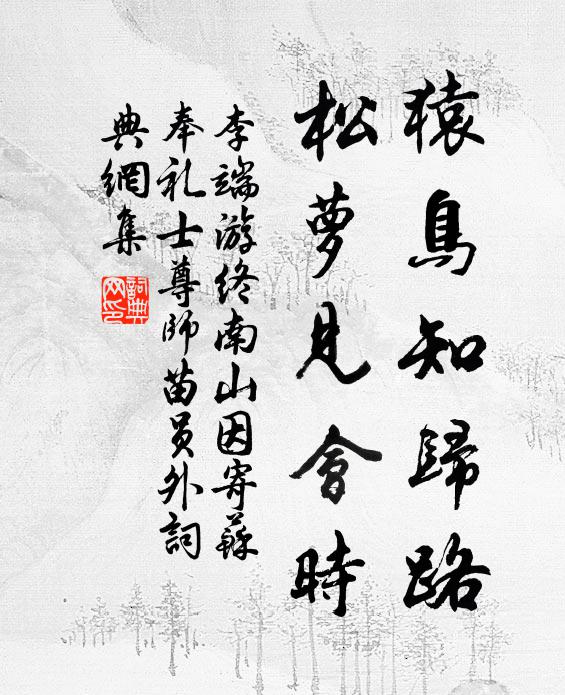 猿鳥知歸路
松夢見會時
李端游终南山因寄蘇
奉礼士尊師苗員外詞
典網集
詞典
网印